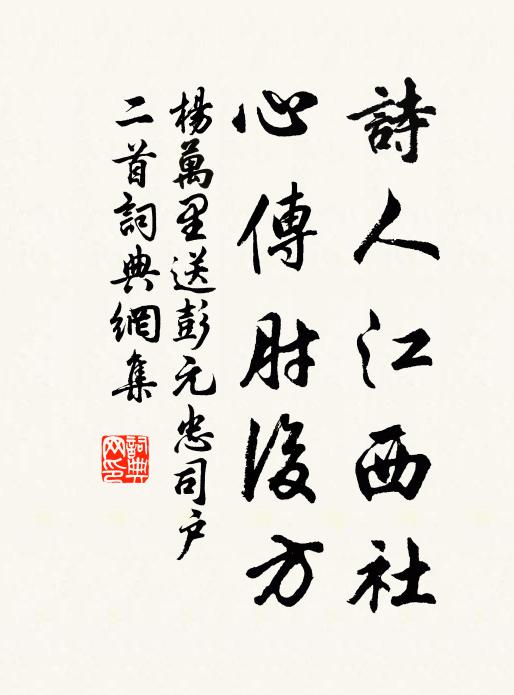 詩人江西社
心傳肘後方
楊萬里送彭元忠司戶
二首詞典網集
詞典網印